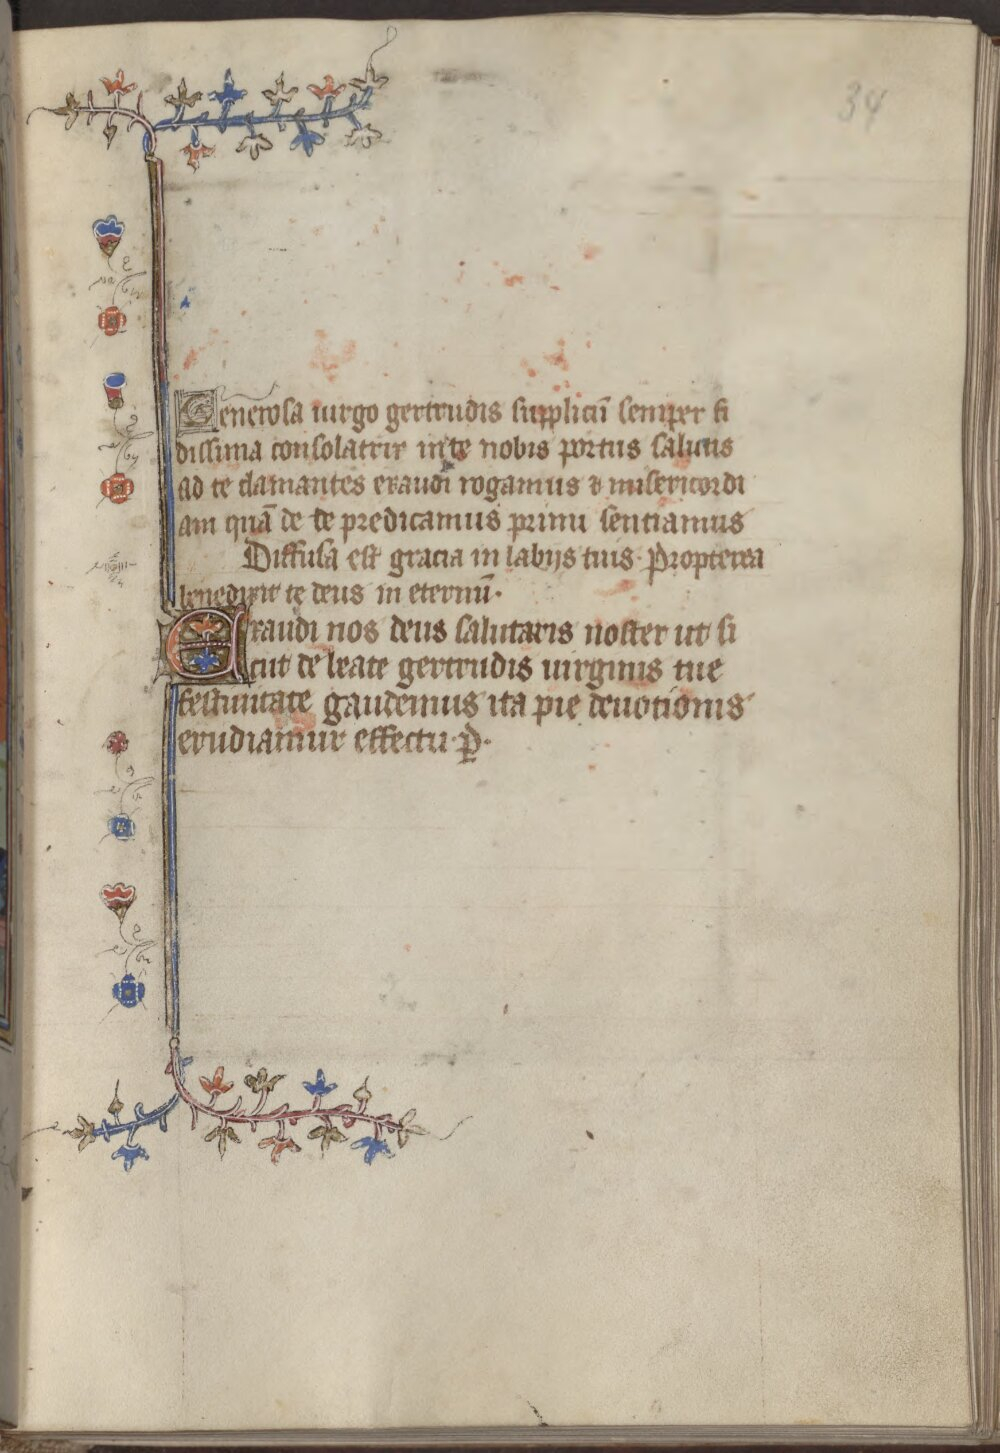 34
Generosa uirgo gertrudis suppliciū semper fi
dissima consolatrix in te nobis portus salutis
ad te clamantes exaudi rogamus & misericordi
am quā de te predicamus primi sentiamus
Diffusa est gracia in labijs tuis. Propterea
benedixit te deus in eternū.
Exaudi nos deus salutaris noster ut si
cut de beate gertrudis uirginis tue
festiuitate gaudemus ita pie deuotionis
erudiamur effectu. P.